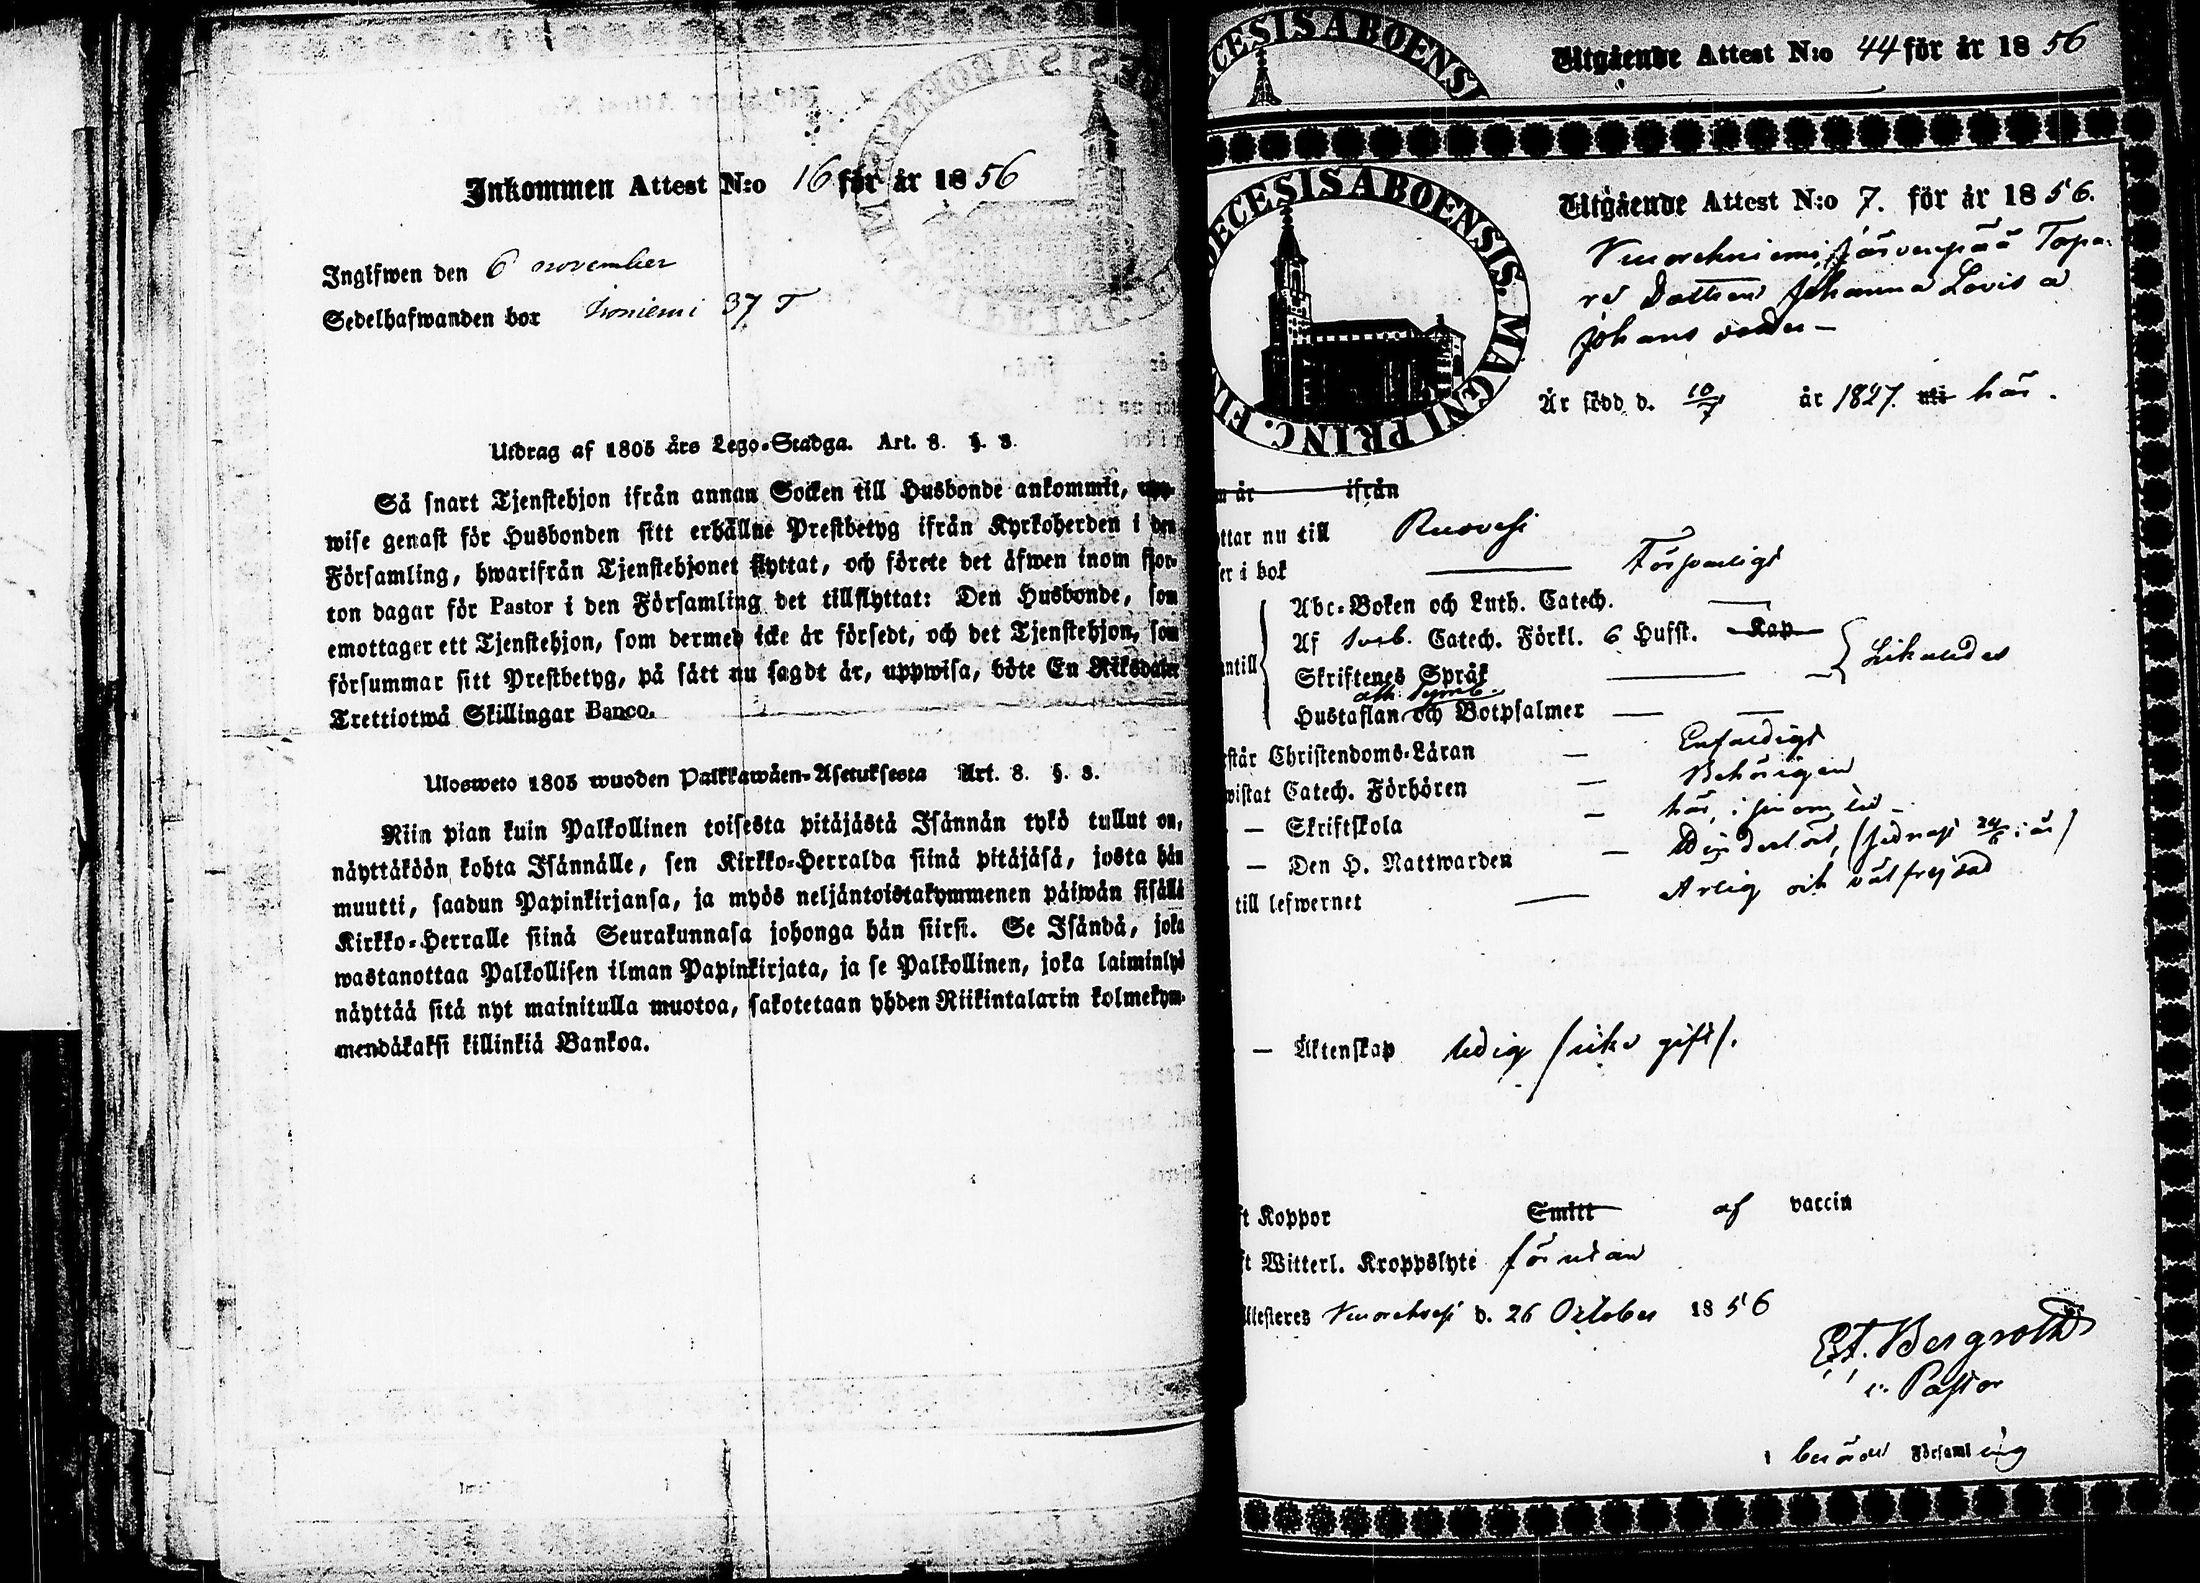 Inkommen Attest N:o 16 för år 1856
Ingifwen den 6 november
Sedelhafwanden bor 37 T
Utdrag af 1805 års Lego-Stadga. Art. 8. §. 8.
Så snart Tjenstehjon ifrån annan Socken till Husbonde ankommit, upp-
wise genast för Husbonden sitt erhållne Prestbetyg ifrån Kyrkoherden i den
Församling, hwarifrån Tjenstehjonet flyttat, och förete det äfwen inom fjor-
ton dagar för Pastor i den Församling det tillflyttat: Den Husbonde, som
emottager ett Tjenstehjon, som dermed icke är försedt, och det Tjenstehjon, som
försummar sitt Prestbetyg, på sätt nu sagdt är, uppwisa, böte En Riksdaler
Trettiotwå Skillingar Banco.
Ulosweto 1805 wuoden Palkkawäen-Asetuksesta Art. 8. §. 8.
Niin pian kuin Palkollinen toisesta pitäjästä Isännän tykö tullut on,
näyttäköön kohta Isännälle, sen Kirkko-Herralda siinä pitäjäsä, josta hän
muutti, saadun Papinkirjansa, ja myös neljäntoistakymmenen päiwän sisällä
Kirkko-Herralle siinä Seurakunnasa johonga hän siirsi. Se Isändä, joka
wastanottaa Palkollisen ilman Papinkirjata, ja se Palkollinen, joka laiminlyö
näyttää sitä nyt mainitulla muotoa, sakotetaan yhden Riikintalarin kolmekym-
mendäkaksi killinkiä Bankoa.
Utgående Attest N:o 44 för år 1856
ECESIS ABOENSI
Utgående Attest N:o 7. för år 1856.
DECESIS ABOENSIS. MAGNI PRINC. FIN
Järvenpää
Johanna Lovisa
Är född d. 10/7 år 1827. uti här.
år ifrån
ttar nu till Ruovesi
er i bok Försvarligt
Abc-Boken och Luth. Catech.
Af Catech. Förkl. 6 Hufst. Kap
antill Skriftenes Språk Likaledes
ath. symb.
Hustaflan och Botpsalmer
står Christendoms-Läran Enfaldigt
wistat Catech. Förhören Behörigen
— Skriftskola här, i sinom tid
— Den H. Nattwarden (sednast 24/6 i år)
till lefwernet Ärlig och välfrejdad
— Äktenskap ledig (icke gift).
ft Koppor Smitt af vaccin
ft Witterl. Kroppslyte förutan
Attesteres d. 26 October 1856
Bergroth
v. Pastor
i berörde Församling